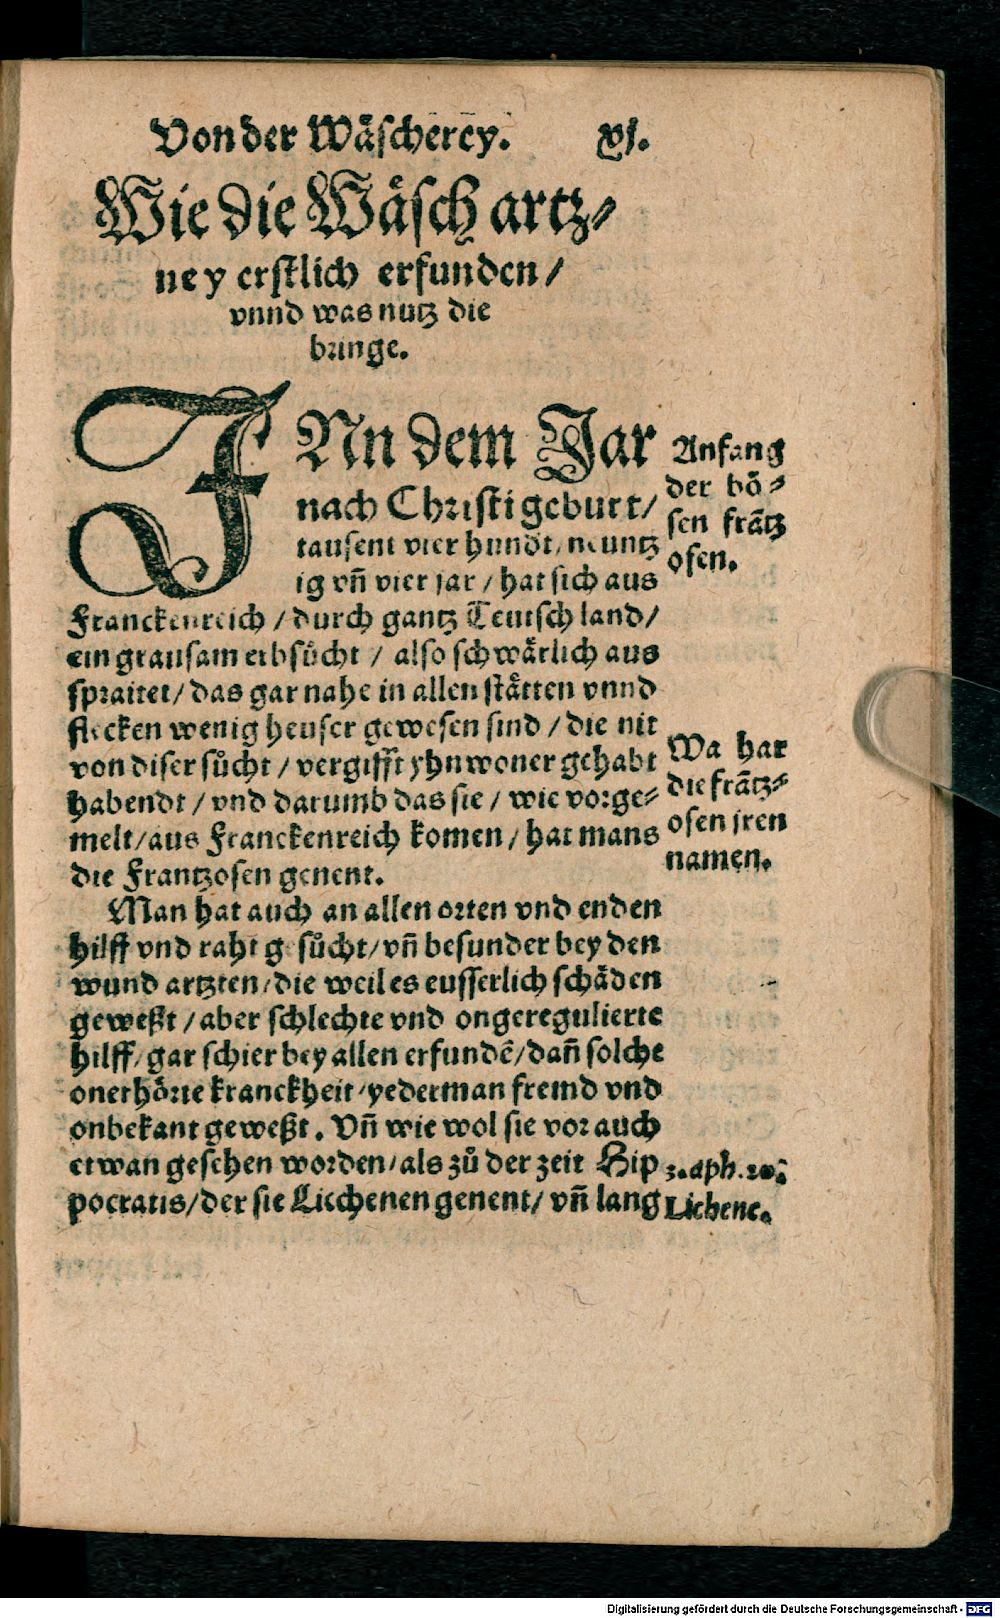 Von der Wäscherey. xj.
Wie die Wäsch artz⸗
ney erstlich erfunden /
vnnd was nutz die
bringe.
INn dem Jar
nach Christi geburt /
tausent vier hundt / neuntz
ig vñ vier jar / hat sich aus
Franckenreich / durch gantz Teutsch land /
ein grausam erbsücht / also schwärlich aus
spraitet / das gar nahe in allen stätten vnnd
flecken wenig heuser gewesen sind / die nit
von diser sůcht / vergifft yhnwoner gehabt
habendt / vnd darumb das sie / wie vorge⸗
melt / aus Franckenreich komen / hat mans
die Frantzosen genent.
Man hat auch an allen orten vnd enden
hilff vnd raht gesůcht / vñ besunder bey den
wund artzten / die weil es eusserlich schäden
geweßt / aber schlechte vnd ongeregulierte
hilff / gar schier bey allen erfundẽ / dañ solche
onerhörte kranckheit / yederman fremd vnd
onbekant geweßt. Vñ wie wol sie vor auch
etwan gesehen worden / als zů der zeit Hip
pocratis / der sie Licchenen genent / vñ lang
Anfang
der bö⸗
sen frãtz
osen.
Wa har
die frãtz⸗
osen jren
namen.
3. aph. 20.
Lichene.
Digitalisierung gefördert durch die Deutsche Forschungsgemeinschaft - DFG